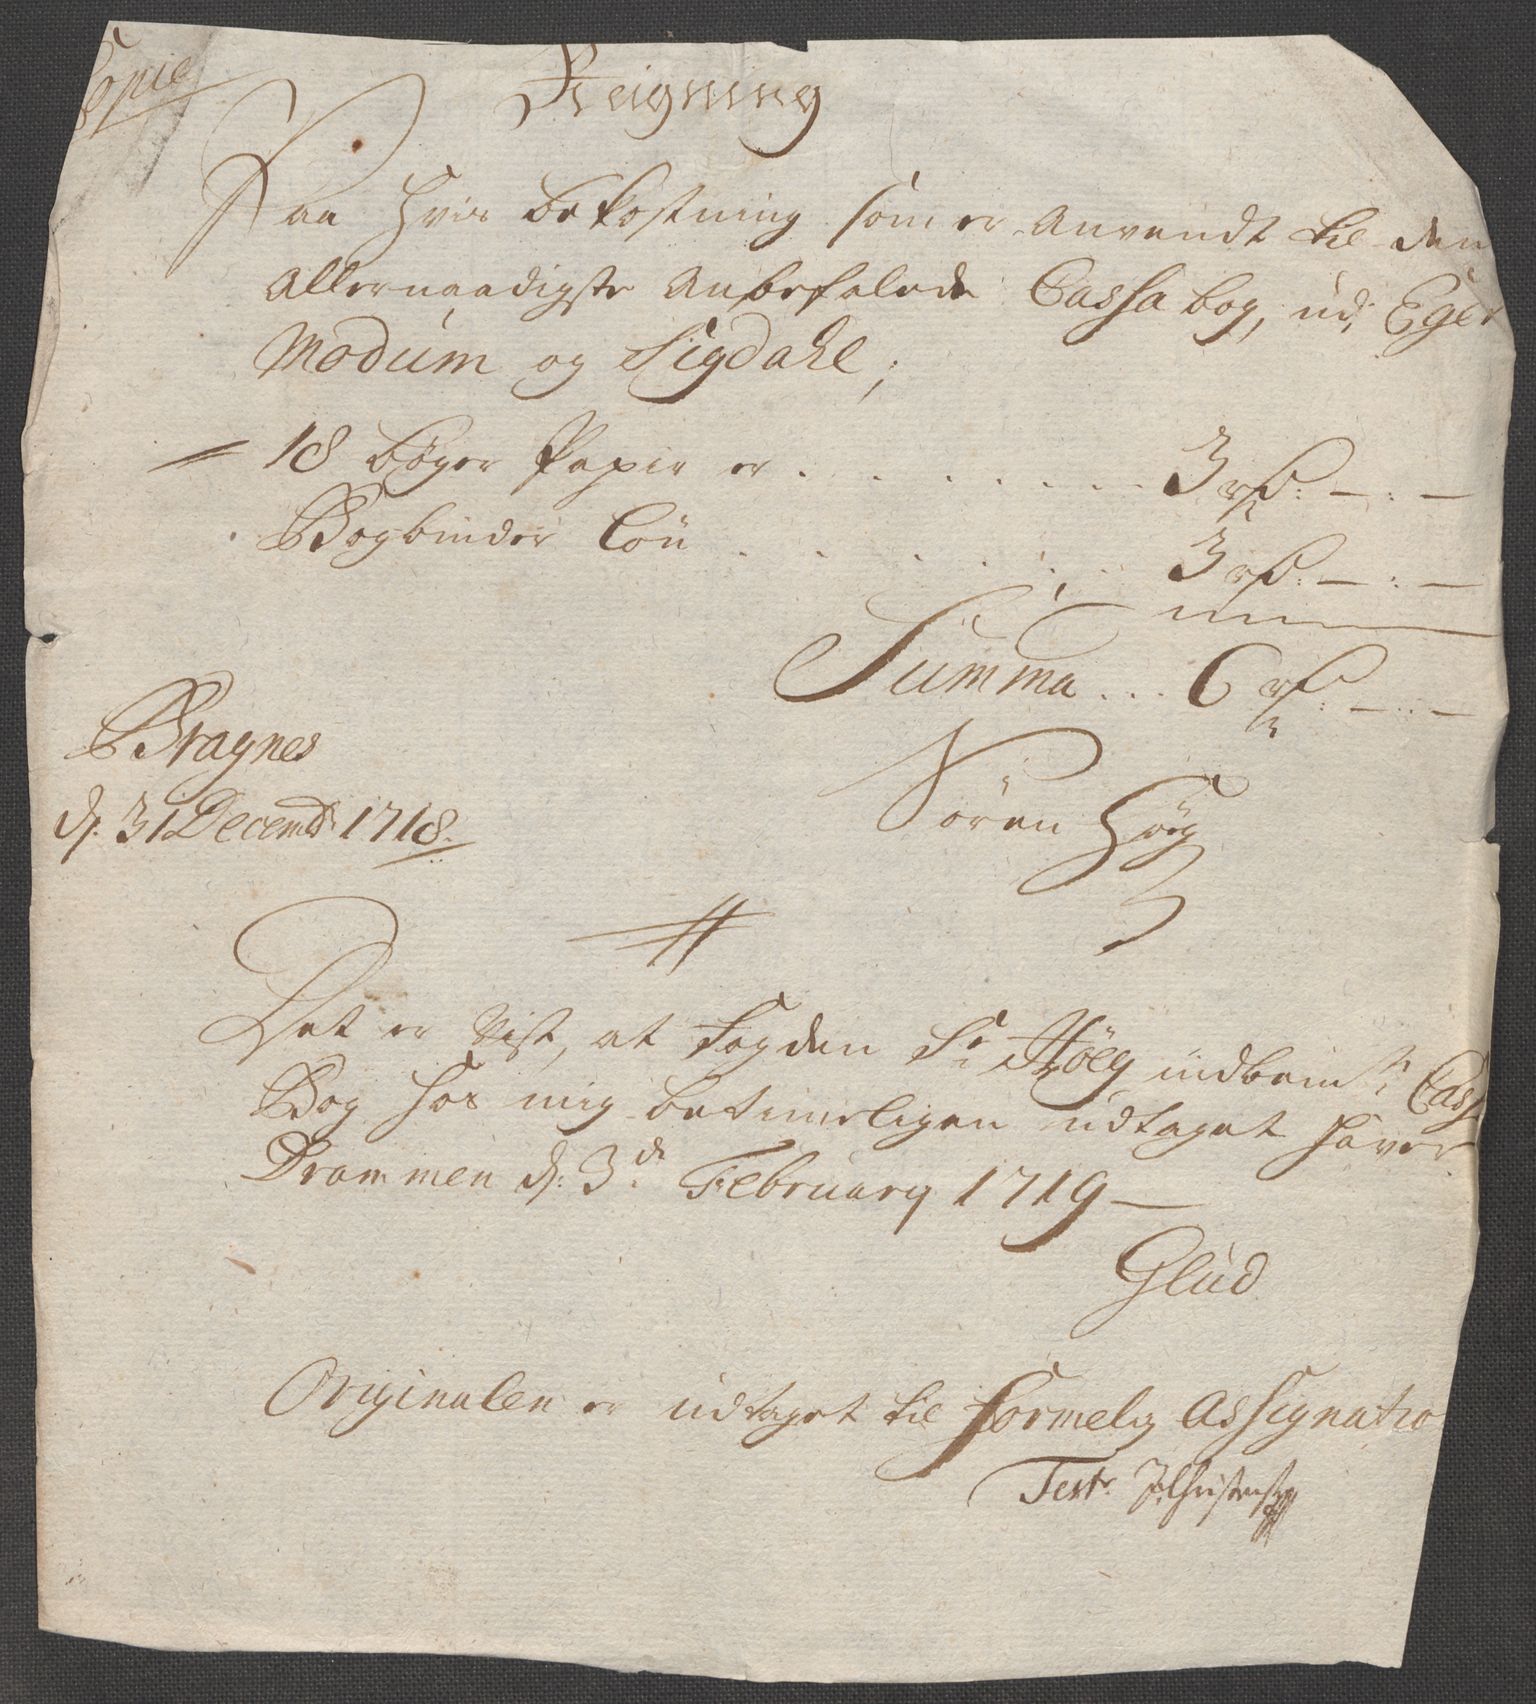 Copie
Reigning
Paa hvis bekostning som er anvendt til den
allernaadigste anbefalede Cassa bog, udi Eger
Modum og Sigdahl;
18 bøger Papir er . . . . . . . . 3 rd: — : —
Bogbinder løn . . . . . . . 3 rd: — : —
Summa . . . 6 rd: — : —
Bragnes
d. 31 Decemb: 1718.
Søren Høeg
Det er vist, at fogden Sr Høeg indbem:te Cass
Bog hos mig betimeligen udtaget haver
Drammen d: 3de February 1719 —
Glud
Originalen er udtaget til formelig Assignatio
Test: J. Christensen